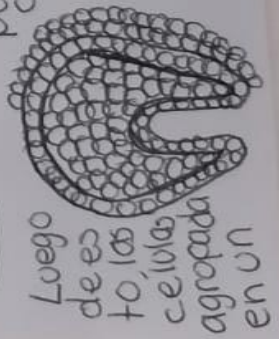 Luego
de es
to, las
celulas
agropada
en un